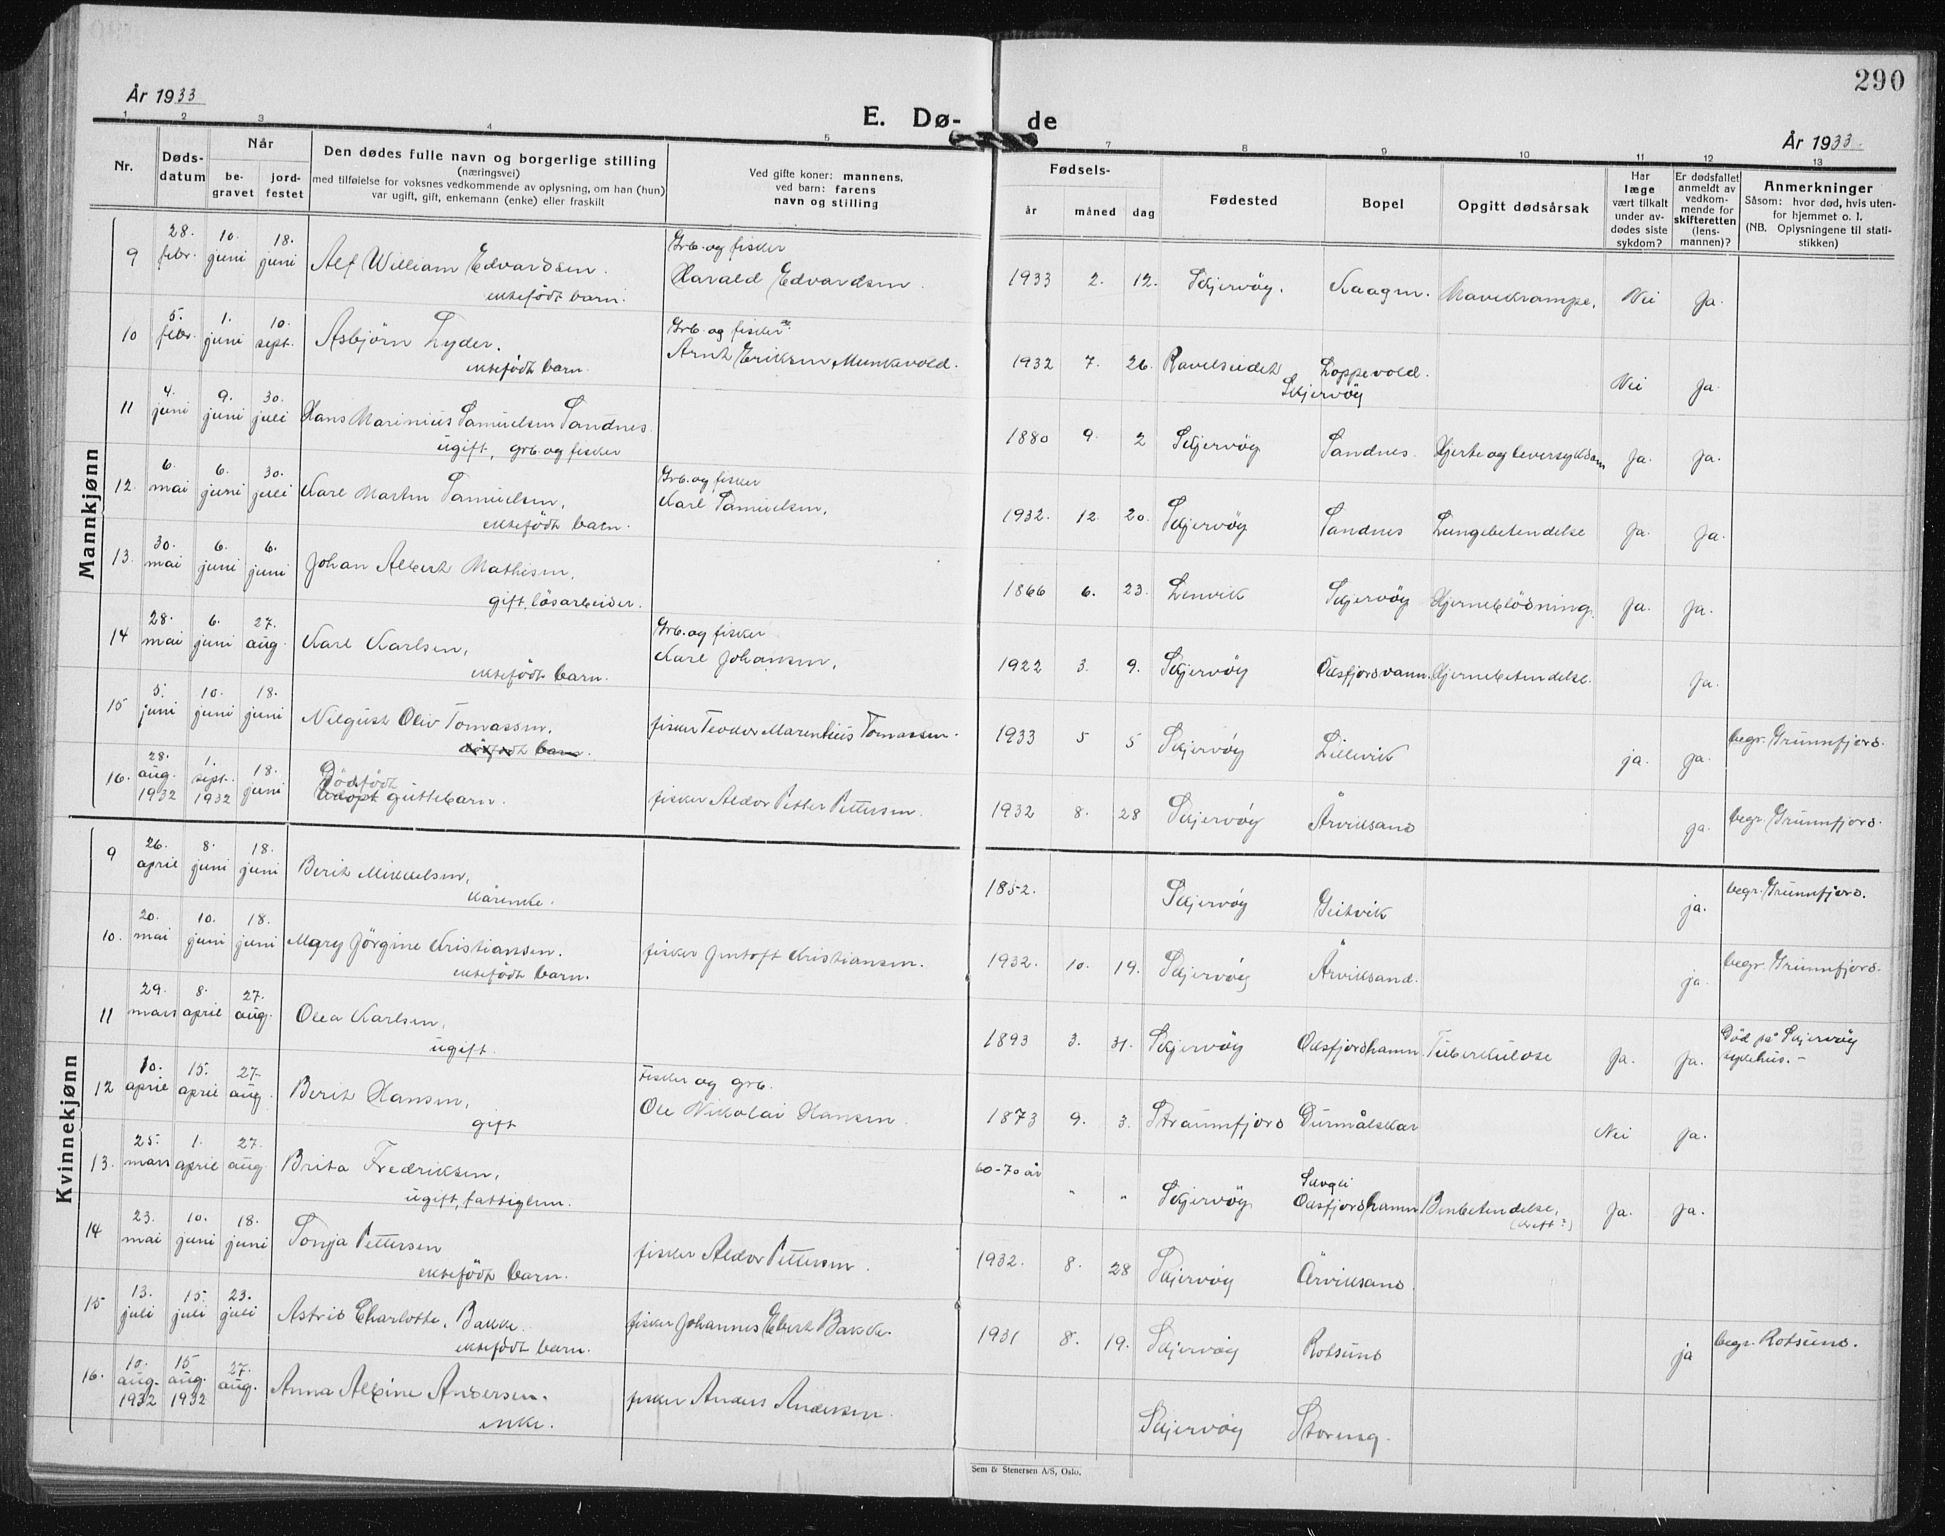 290
År 1933
E. Dø-
de
År 1933
1 2 3 4 5 7 8 9 10 11 12 13
Nr.
Døds-
datum
Når
be-
gravet
jord-
festet
Den dødes fulle navn og borgerlige stilling
(næringsvei)
med tilføielse for voksnes vedkommende av oplysning, om han (hun)
var ugift, gift, enkemann (enke) eller fraskilt
Ved gifte koner: mannens,
ved barn: farens
navn og stilling
Fødsels-
år måned dag
Fødested
Bopel
Opgitt dødsårsak
Har
læge
vært tilkalt
under av-
dødes siste
sykdom?
Er dødsfallet
anmeldt av
vedkom-
mende for
skifteretten
(lens-
mannen)?
Anmerkninger
Såsom: hvor død, hvis uten-
for hjemmet o. l.
(NB. Oplysningene til stati-
stikken)
Mannkjønn
9 28. febr. 10. juni 18. juni Alf William Edvardsen. ektefödt barn. Grb. og fisker Harald Edvardsen. 1933 2. 12. Skjervöy. Kaagen. Mavekrampe. Nei Ja.
10 5. febr. 1. juni 10. sept. Asbjörn Lyder. ektefödt barn. Grb. og fisker Arnt Eriksen Munkvold. 1932 7. 26. Ravelseidet Skjervöy Loppevold. Nei Ja.
11 4. juni 9. juni 30. juli Hans Marinius Samuelsen Sandnes. ugift, grb. og fisker 1880 9. 2 Skjervöy Sandnes. Hjerte og leversykdom Ja. Ja.
12. 6. mai 6. juni 30. juli Karl Martin Samuelsen, ektefödt barn. Grb. og fisker Karl Samuelsen, 1932. 12. 20. Skjervöy Sandnes Lungebetendelse Ja. Ja.
13. 30. mai 6. juni 6. juni Johan Albert Mathisen, gift, lösarbeider. 1866 6. 23. Lenvik Skjervöy Hjerneblödning. Ja. Ja.
14 28. mai 6. juni 27. aug. Karl Karlsen, ektefödt barn. Grb. og fisker Karl Johansen, 1922 3. 9. Skjervöy Oksfjordvann. Hjernebetendelse. Ja.
15 5. juni 10. juni 18. juni Nilgust Oliv Tomassen, fisker Teodor Marentius Tomassen. 1933 5 5 Skjervöy Lillevik ja. Ja. begr. Grunnfjord.
16. 28. aug. 1932 1. sept. 1932 18. juni Dödfödt guttebarn. fisker Aldor Petter Pettersen. 1932 8. 28 Skjervöy Årviksand ja. begr. Grunnfjord.
Kvinnekjønn
9 26. april 8. juni 18. juni Berit Mikkelsen, kårenke. 1852. Skjervöy Geitvik ja. begr. Grunnfjord.
10. 20. mai 10. juni 18. juni Mary Jörgine Kristiansen. ektefödt barn. fisker Jentoft Kristiansen. 1932. 10. 19. Skjervöy Årviksand. ja. begr. Grunnfjord.
11 29. mars 8. april 27. aug. Olea Karlsen, ugift. 1893 3. 31. Skjervöy Oksfjordhamn. Tuberkulose Ja. Ja. Död på Skjervöy sykehus.-
12 10. april 15. april 27. aug. Berit Hansen, gift Fisker og grb. Ole Nikolai Hansen. 1873 9. 3. Straumfjord Durmålskar Nei Ja.
13. 25. mars 1. april 27. aug. Brita Fredriksen, ugift, fattiglem. 60-70 år " " Skjervöy Oksfjordhamn Benbetendelse, (kreft?) Ja. Ja.
14 23. mai 10. juni 18. juni Tonja Pettersen ektefödt barn. fisker Aldor Pettersen. 1932. 8. 28 Skjervöy Årviksand
15 13. juli 15. juli 23. juli Astrid Charlotte, Bakke. ektefödt barn. fisker Johannes Ebert Bakke. 1931 8. 19. Skjervöy Rotsund ja begr. Rotsund.
16. 10. aug. 1932 15 aug. 1932 27. aug. Anna Albine Andersen. enke. fisker Anders Andersen. Skjervöy Storeng.
Sem & Stenersen A/S, Oslo.